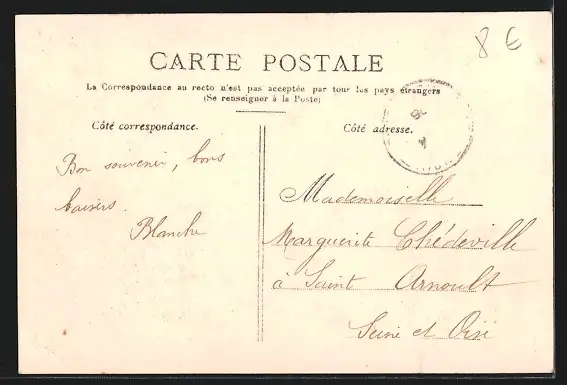 8 €
CARTE POSTALE
La Correspondance au recto n'est pas acceptée par tous les pays étrangers
(Se renseigner à la Poste)
Côté correspondance.
Côté adresse.
Bon souvenir, bons
baisers.
Blanche
Mademoiselle
Marguerite Chédeville
à Saint Arnoult
Seine et Oise